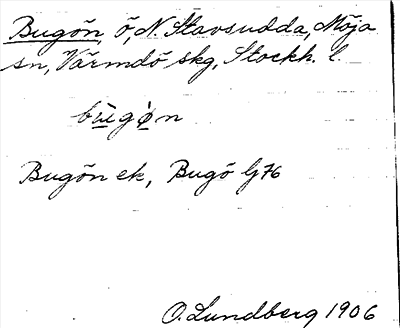 Bugön, ö, N. Stavsudda, Möja
sn, Värmdö skg, Stockh. l.
bùgøn
Bugön ek, Bugö G76
O. Lundberg 1906